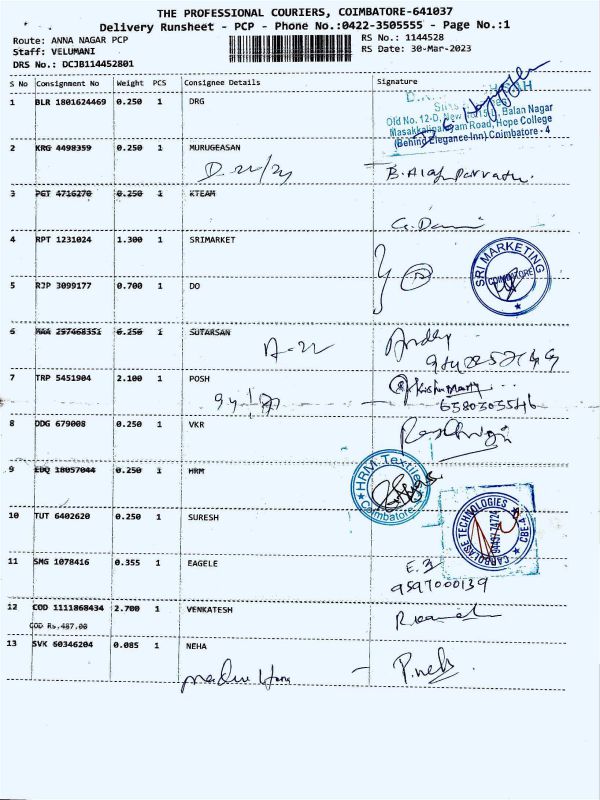 THE PROFESSIONAL COURIERS, COIMBATORE-641037
Delivery Runsheet - PCP - Phone No.:0422-3505555 - Page No.:1
Route: ANNA NAGAR PCP RS No.: 1144528
Staff: VELUMANI RS Date: 30-Mar-2023
DRS No.: DCJB114452801
S No Consignment No Weight PCS Consignee Details Signature
1 BLR 1801624469 0.250 1 DRG
Old No. 12-D, Balan Nagar
Masakkalipalayam Road, Hope College
(Behind Elegance Inn) Coimbatore - 4
2 KRG 4498359 0.250 1 MURUGEASAN
3 PGT 4716270 0.250 1 KTEAM
4 RPT 1231024 1.300 1 SRIMARKET
SRI MARKETING
COIMBATORE
5 RJP 3099177 0.700 1 DO
6 MAA 257468351 6.250 1 SUTARSAN
7 TRP 5451904 2.100 1 POSH
6580303546
8 DDG 679008 0.250 1 VKR
9 EDQ 18057044 0.250 1 HRM
HRM Textile
Coimbatore
10 TUT 6402620 0.250 1 SURESH
CARBOLASE TECHNOLOGIES
CBE-4
11 SMG 1078416 0.355 1 EAGELE
9597000139
12 COD 1111868434 2.700 1 VENKATESH
COD Rs.487.00
13 SVK 60346204 0.085 1 NEHA
P.neha